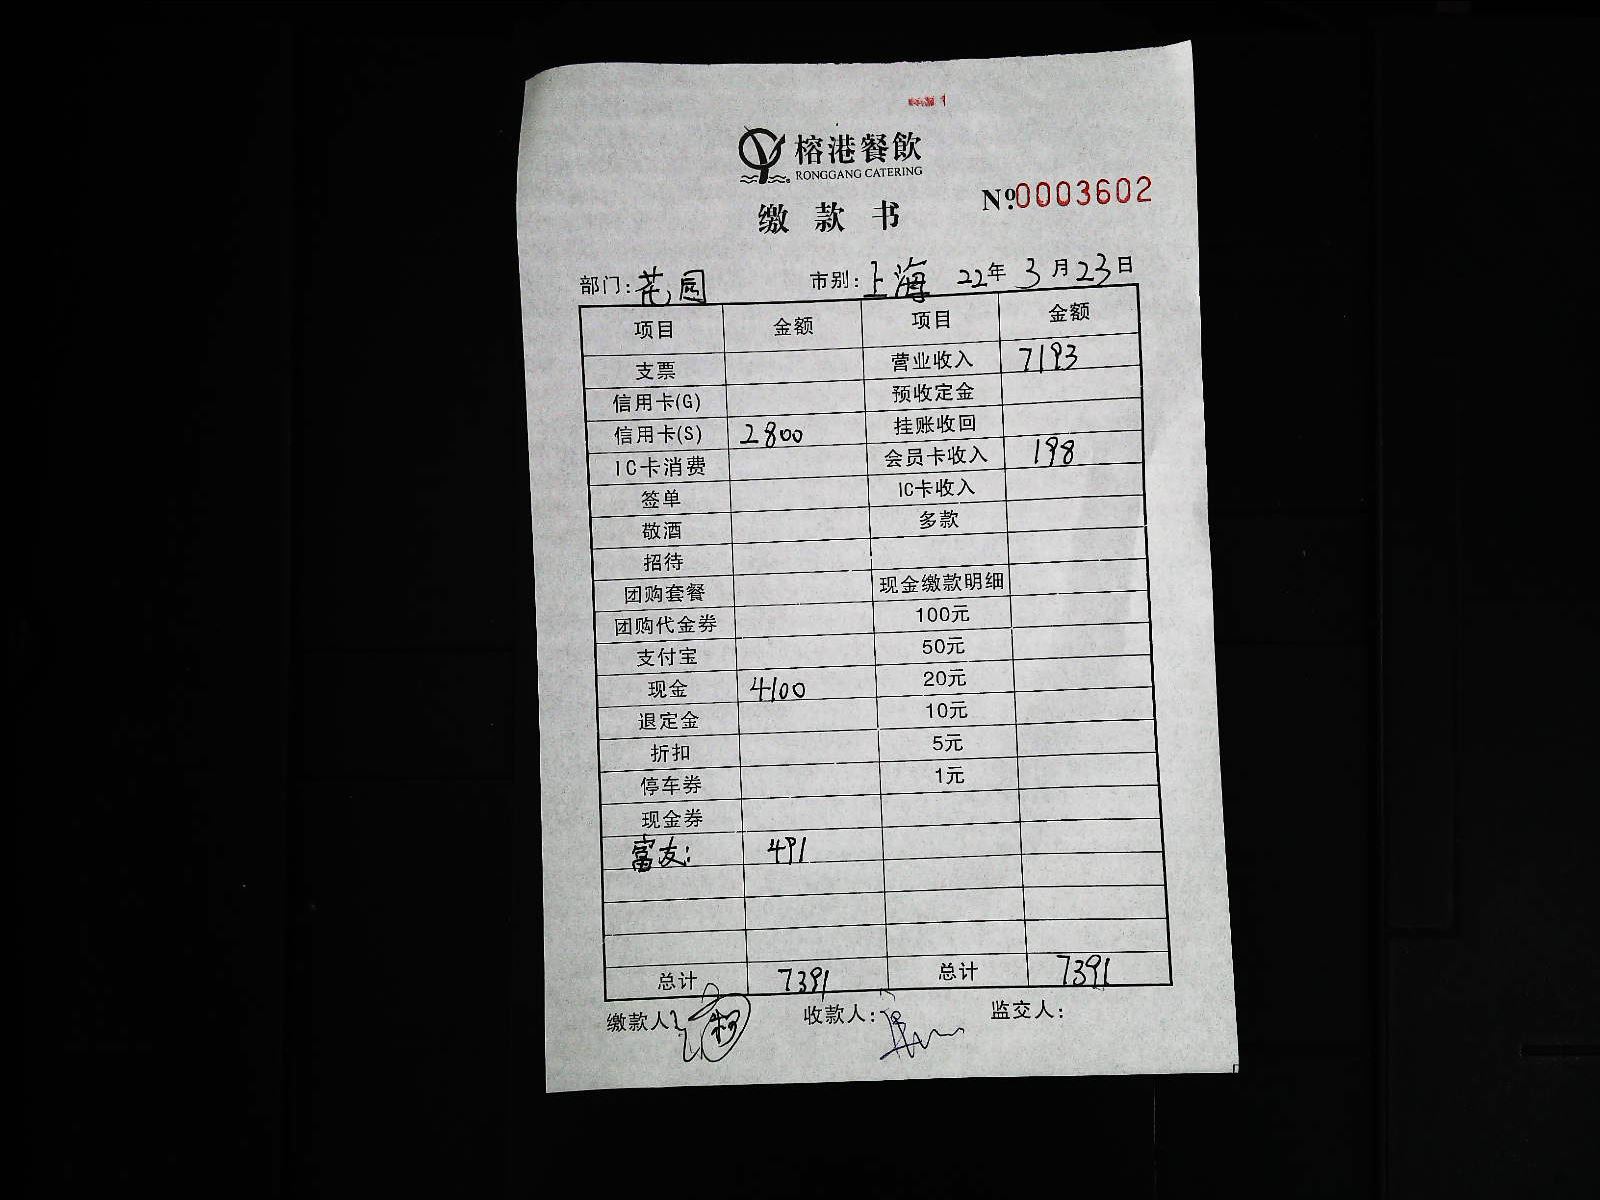 榕港餐飲
RONGGANG CATERING
№.0003602
缴款书
部门：花园 市别：上海 22年 3月 23日
项目 金额 项目 金额
支票 营业收入 7193
信用卡(G) 预收定金
信用卡(S) 2800 挂账收回
IC卡消费 会员卡收入 198
签单 IC卡收入
敬酒 多款
招待
团购套餐 现金缴款明细
团购代金券 100元
支付宝 50元
现金 4100 20元
退定金 10元
折扣 5元
停车券 1元
现金券
富友： 491
总计 7391 总计 7391
缴款人： 收款人： 监交人：